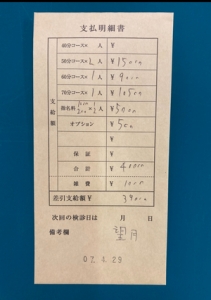 支払明細書
40分コース× 人 ¥
50分コース× 2 人 ¥ 15000
60分コース× 1 人 ¥ 9000
70分コース× 1 人 ¥ 10500
指名料 ¥ 5000
オプション ¥ 500
¥
保証 ¥
合計 ¥ 40000
雑費 ¥ 1000
差引支給額 ¥ 39000
支給額
次回の検診日は 月 日
備考欄 望月